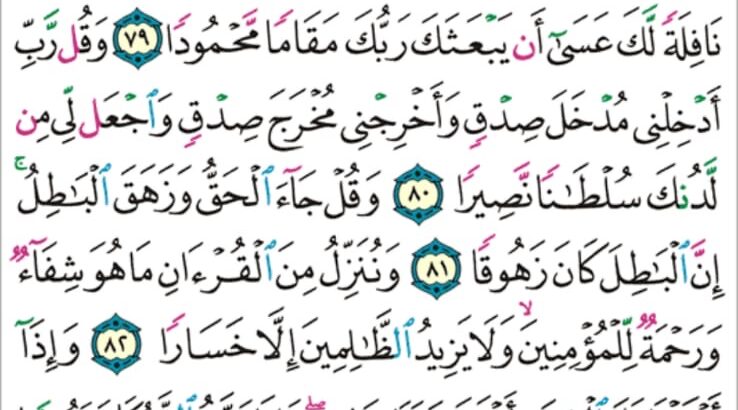 نَافِلَةً لَّكَ عَسَىٰٓ أَن يَبْعَثَكَ رَبُّكَ مَقَامًا مَّحْمُودًا ٧٩ وَقُل رَّبِّ
أَدْخِلْنِى مُدْخَلَ صِدْقٍ وَأَخْرِجْنِى مُخْرَجَ صِدْقٍ وَٱجْعَل لِّى مِن
لَّدُنكَ سُلْطَـٰنًا نَّصِيرًا ٨٠ وَقُلْ جَآءَ ٱلْحَقُّ وَزَهَقَ ٱلْبَـٰطِلُ ۚ
إِنَّ ٱلْبَـٰطِلَ كَانَ زَهُوقًا ٨١ وَنُنَزِّلُ مِنَ ٱلْقُرْءَانِ مَا هُوَ شِفَآءٌ
وَرَحْمَةٌ لِّلْمُؤْمِنِينَ ۙ وَلَا يَزِيدُ ٱلظَّـٰلِمِينَ إِلَّا خَسَارًا ٨٢ وَإِذَآ